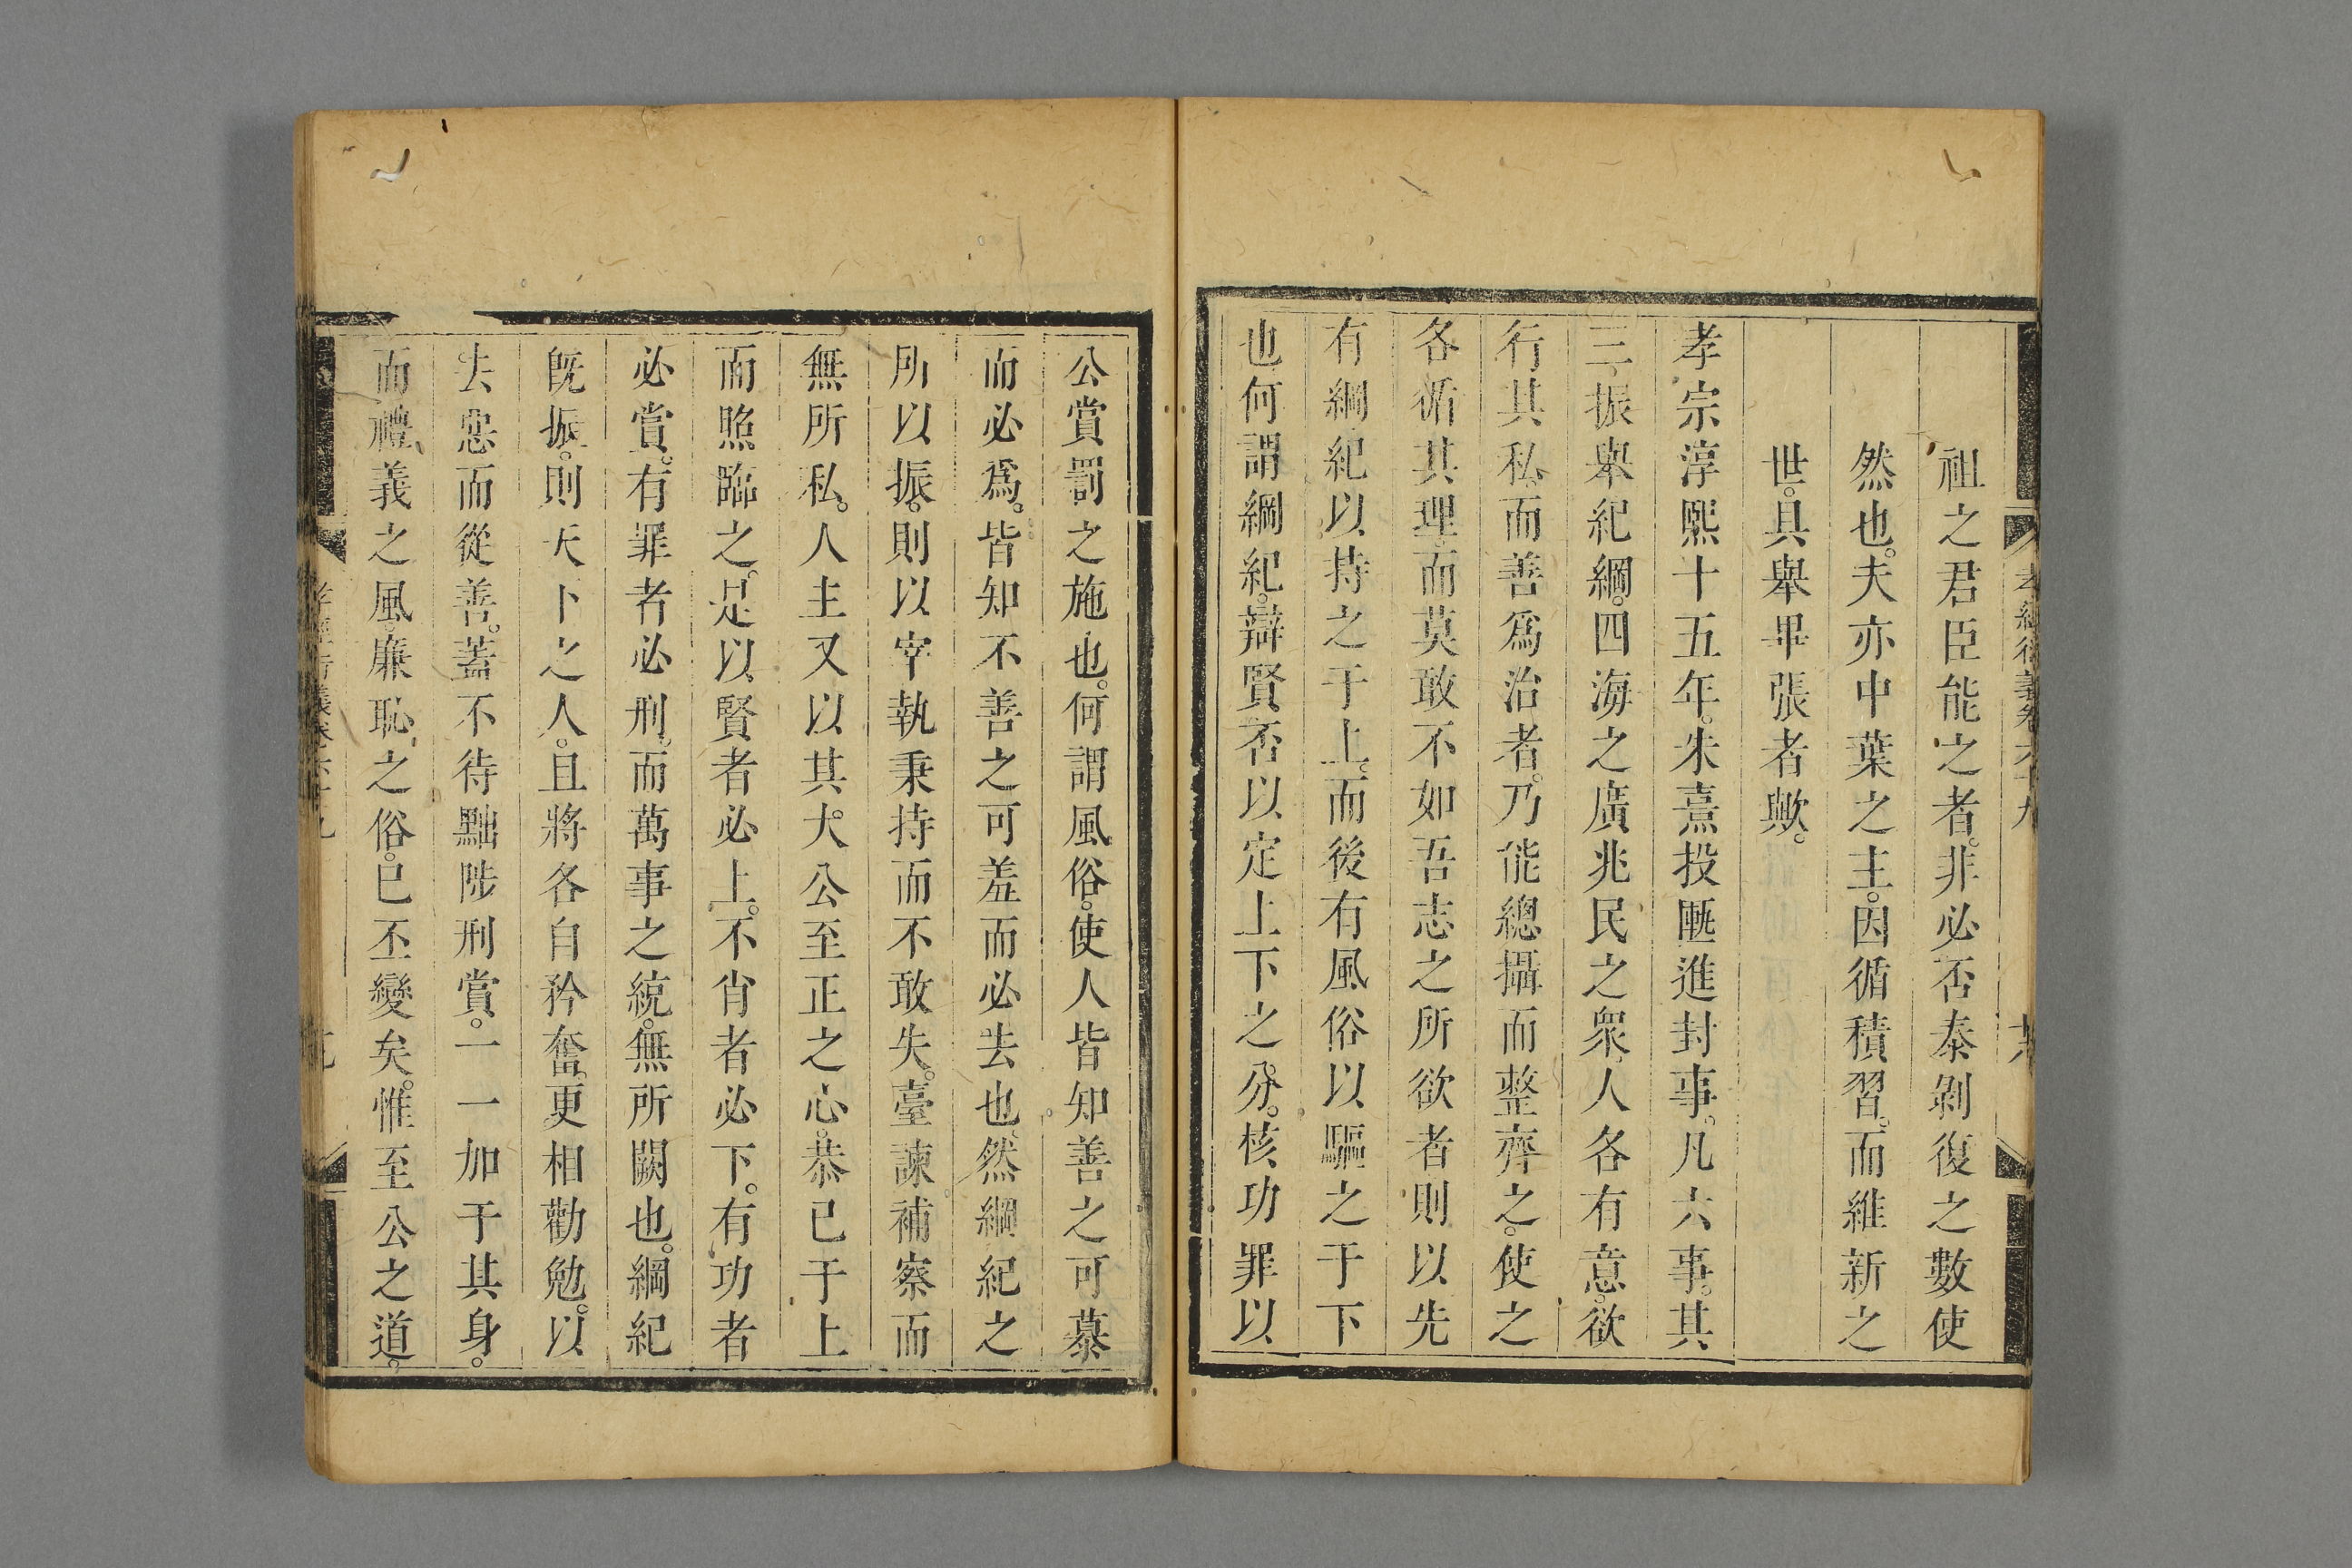 祖之君臣能之者。非必否泰剝復之數使
然也。夫亦中葉之主。因循積習。而維新之
世。具舉畢張者歟。
孝宗淳熙十五年。朱熹投匭進封事。凡六事。其
三振舉紀綱。四海之廣兆民之衆人各有意。欲
行其私。而善爲治者。乃能總攝而整齊之。使之
各循其理。而莫敢不如吾志之所欲者則以先
有綱紀以持之于上。而後有風俗以驅之于下
也何謂綱紀。辯賢否以定上下之分。核功罪以
公賞罰之施也。何謂風俗。使人皆知善之可慕
而必爲。皆知不善之可羞而必去也。然綱紀之
所以振。則以宰執秉持而不敢失。臺諫補察而
無所私。人主又以其大公至正之心。恭已于上
而照臨之。是以賢者必上。不肖者必下。有功者
必賞。有罪者必刑。而萬事之統。無所闕也。綱紀
旣振。則天下之人。且將各自矜奮。更相勸勉。以
去惡而從善。蓋不待黜陟刑賞。一一加于其身。
而禮義之風。廉恥之俗。已丕變矣。惟至公之道。